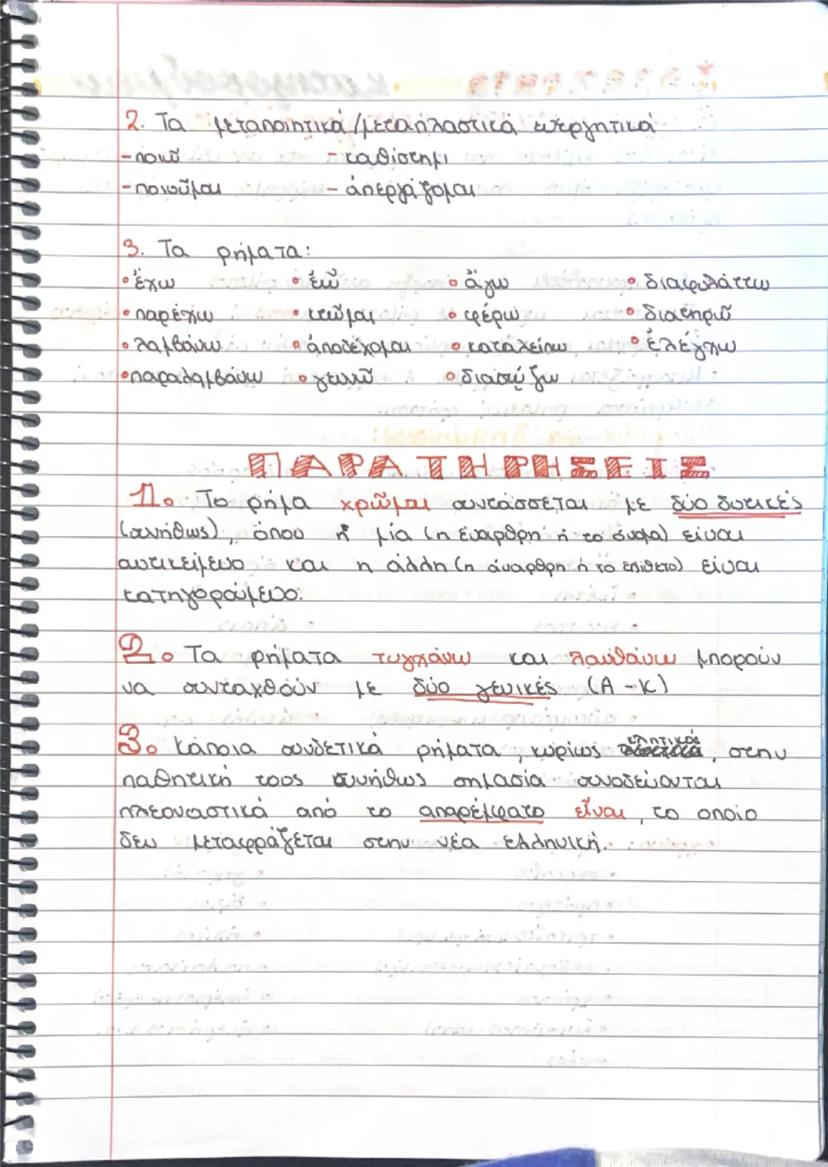 2. Τα μεταποιητικά/μεταπλαστικά ενεργητικά
-ποιῶ -καθίστημι
-ποιοῦμαι -ἀπεργάζομαι
3. Τα ρήματα:
•ἔχω •ἐῶ •ἄγω •διαφυλάττω
•παρέχω •κτῶμαι •φέρω •διατηρῶ
•λαμβάνω •ἀποδέχομαι •καταλείπω •ἐλέγχω
•παραλαμβάνω •γεννῶ •διασῴζω
ΠΑΡΑΤΗΡΗΣΕΙΣ
1. Το ρήμα χρῶμαι συντάσσεται με δύο δοτικές
(συνήθως), όπου ἡ μία (η έναρθρη ή το όνομα) είναι
αντικείμενο και η άλλη (η άναρθρη ή το επίθετο) είναι
κατηγορούμενο.
2. Τα ρήματα τυγχάνω και λανθάνω μπορούν
να συνταχθούν με δύο γενικές (Α-Κ)
3. Κάποια συνδετικά ρήματα, κυρίως κλητικά, στην
παθητική τους συνήθως σημασία συνοδεύονται
πλεοναστικά από το απαρέμφατο εἶναι, το οποίο
δεν μεταφράζεται στην νέα ελληνική.